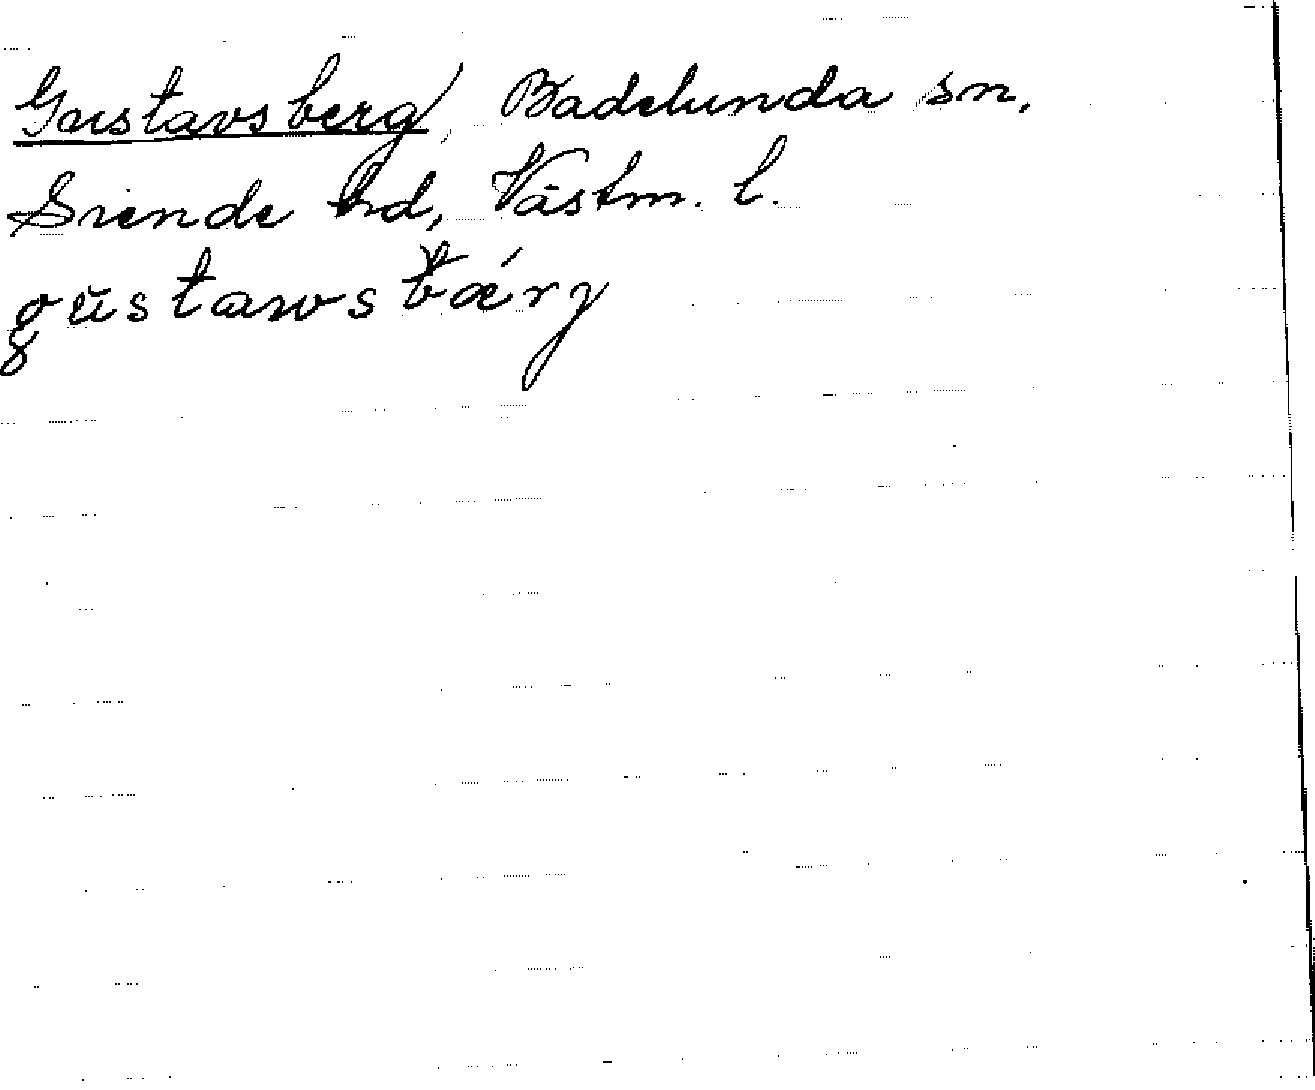 Gustavsberg, Badelunda sn,
Siende hd, Västm. l.
gŭstawsbǽry